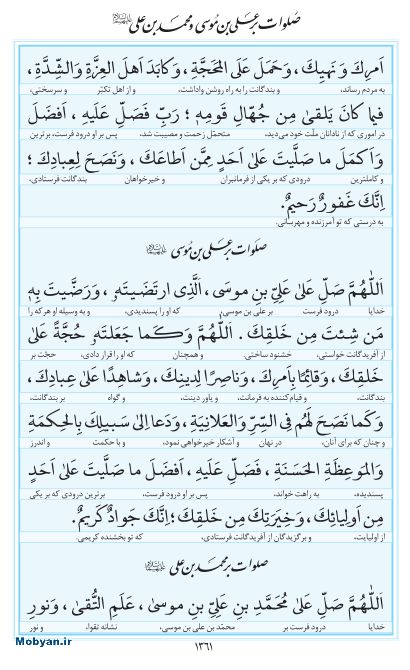 صلوات بر علی بن موسی و محمد بن علی
اَمرِكَ وَ نَهیِكَ ، وَحَمَلَ عَلَی المَحَجَّةِ ، وَكابَدَ اَهلَ العِزَّةِ وَالشِّدَّةِ ،
به مردم رساند، و بندگانت را به راه روشن واداشت، و از اهل تکبّر و سرسختی،
فیما كانَ یَلقیٰ مِن جُهّالِ قَومِهٖ ؛ رَبِّ فَصَلِّ عَلَیهِ ، اَفضَلَ
در اموری که از نادانان ملّت خود می‌دید، متحمّل زحمت و مصیبت شد، پس بر او درود فرست، برترین
وَ اَكمَلَ ما صَلَّیتَ عَلیٰ اَحَدٍ مِمَّن اَطاعَكَ ، وَ نَصَحَ لِعِبادِكَ ؛
و کاملترین درودی که بر یکی از فرمانبران و خیرخواهان بندگانت فرستادی.
اِنَّكَ غَفورٌ رَحیمٌ.
به درستی که تو آمرزنده و مهربانی.
صلوات بر علی بن موسی
اَللّٰهُمَّ صَلِّ عَلیٰ عَلِیِّ بنِ موسَی ، اَلَّذِی ارتَضَیتَهٗ ، وَ رَضَّیتَ بِهٖ
خدایا درود فرست بر علی بن موسی، که او را پسندیدی، و به وسیله او هر که را
مَن شِئتَ مِن خَلقِكَ . اَللّٰهُمَّ وَ كَما جَعَلتَهٗ حُجَّةً عَلیٰ
از آفریدگانت خواستی، خشنود ساختی. و همچنان که او را قرار دادی، حجّت بر
خَلقِكَ ، وَ قائِمًا بِاَمرِكَ ، وَناصِرًا لِدینِكَ ، وَ شاهِدًا عَلیٰ عِبادِكَ ،
بندگانت، و قیام کننده به فرمانت، و یاور دینت، و گواه بر بندگانت،
وَ كَما نَصَحَ لَهُم فِی السِّرِّ وَالعَلانِیَةِ ، وَ دَعا اِلیٰ سَبیلِكَ بِالحِكمَةِ
و چنان که برای آنان، در نهان و آشکار خیرخواهی نمود، و با حکمت و اندرز
وَالمَوعِظَةِ الحَسَنَةِ ، فَصَلِّ عَلَیهِ ، اَفضَلَ ما صَلَّیتَ عَلیٰ اَحَدٍ
پسندیده، به راهت خواند، پس بر او درود فرست، برترین درودی که بر یکی
مِن اَولِیائِكَ ، وَ خِیَرَتِكَ مِن خَلقِكَ ؛ اِنَّكَ جَوادٌ كَریمٌ.
از اولیایت، و برگزیدگان از آفریدگانت فرستادی، که تو بخشنده کریمی.
صلوات بر محمد بن علی
اَللّٰهُمَّ صَلِّ عَلیٰ مُحَمَّدِ بنِ عَلِیِّ بنِ موسیٰ ، عَلَمِ التُّقیٰ ، وَ نورِ
خدایا درود فرست بر محمّد بن علی بن موسی، نشانه تقوا، و نور
۱۳۶۱
Mobyan.ir